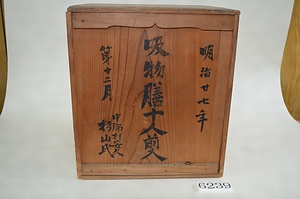 明治廿七年
吸物膳十人前
第十二月
杉山氏
6239